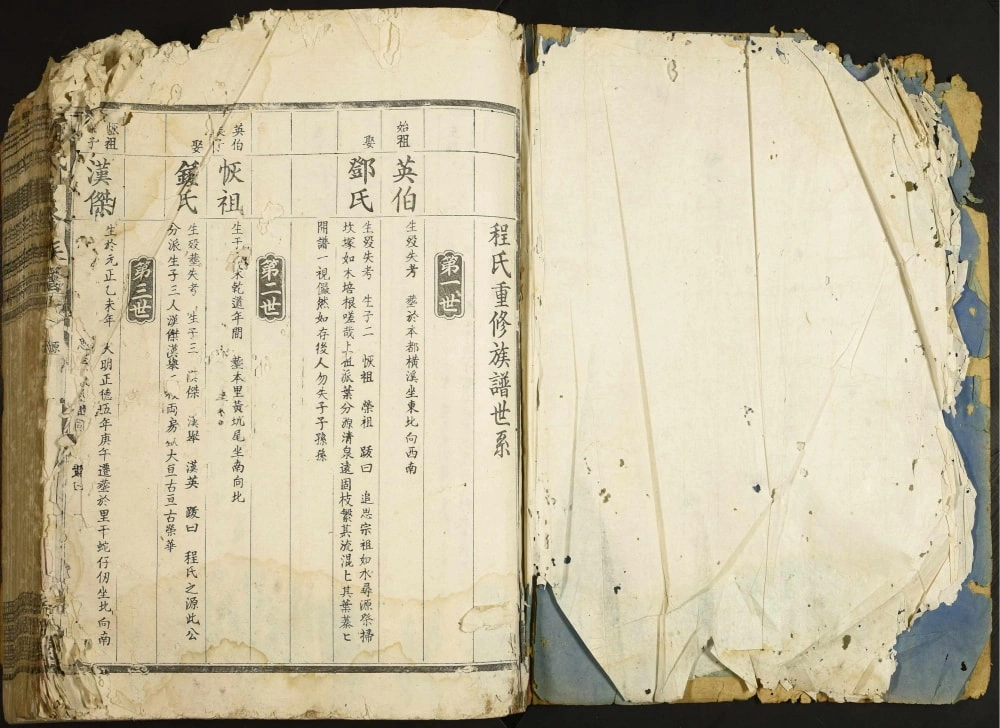 程氏重修族譜世系
第一世
始祖
英伯
生歿失考 塟於本都橫溪坐東北向西南
娶
鄧氏
生歿失考 生子二 恢祖 榮祖 跋曰 追思宗祖如水尋源祭掃
坟塚如木培根嗟哉上世派葉分源清泉遠固枝繁其流混匕其葉蓁匕
開譜一視儼然如存後人勿失子子孫孫
第二世
英伯
長子
恢祖
生于宋乾道年間 塟本里黃坑尾坐南向北
娶
鍾氏
生歿塟失考 生子三 漢傑 漢舉 漢英 跋曰 程氏之源此公
分派生子三人漢傑漢舉 両房 大亘古亘古榮華
第三世
恢祖
子
漢傑
生於元正乙未年 大明正德伍年庚午遷塟於里干蛇仔仞坐北向南